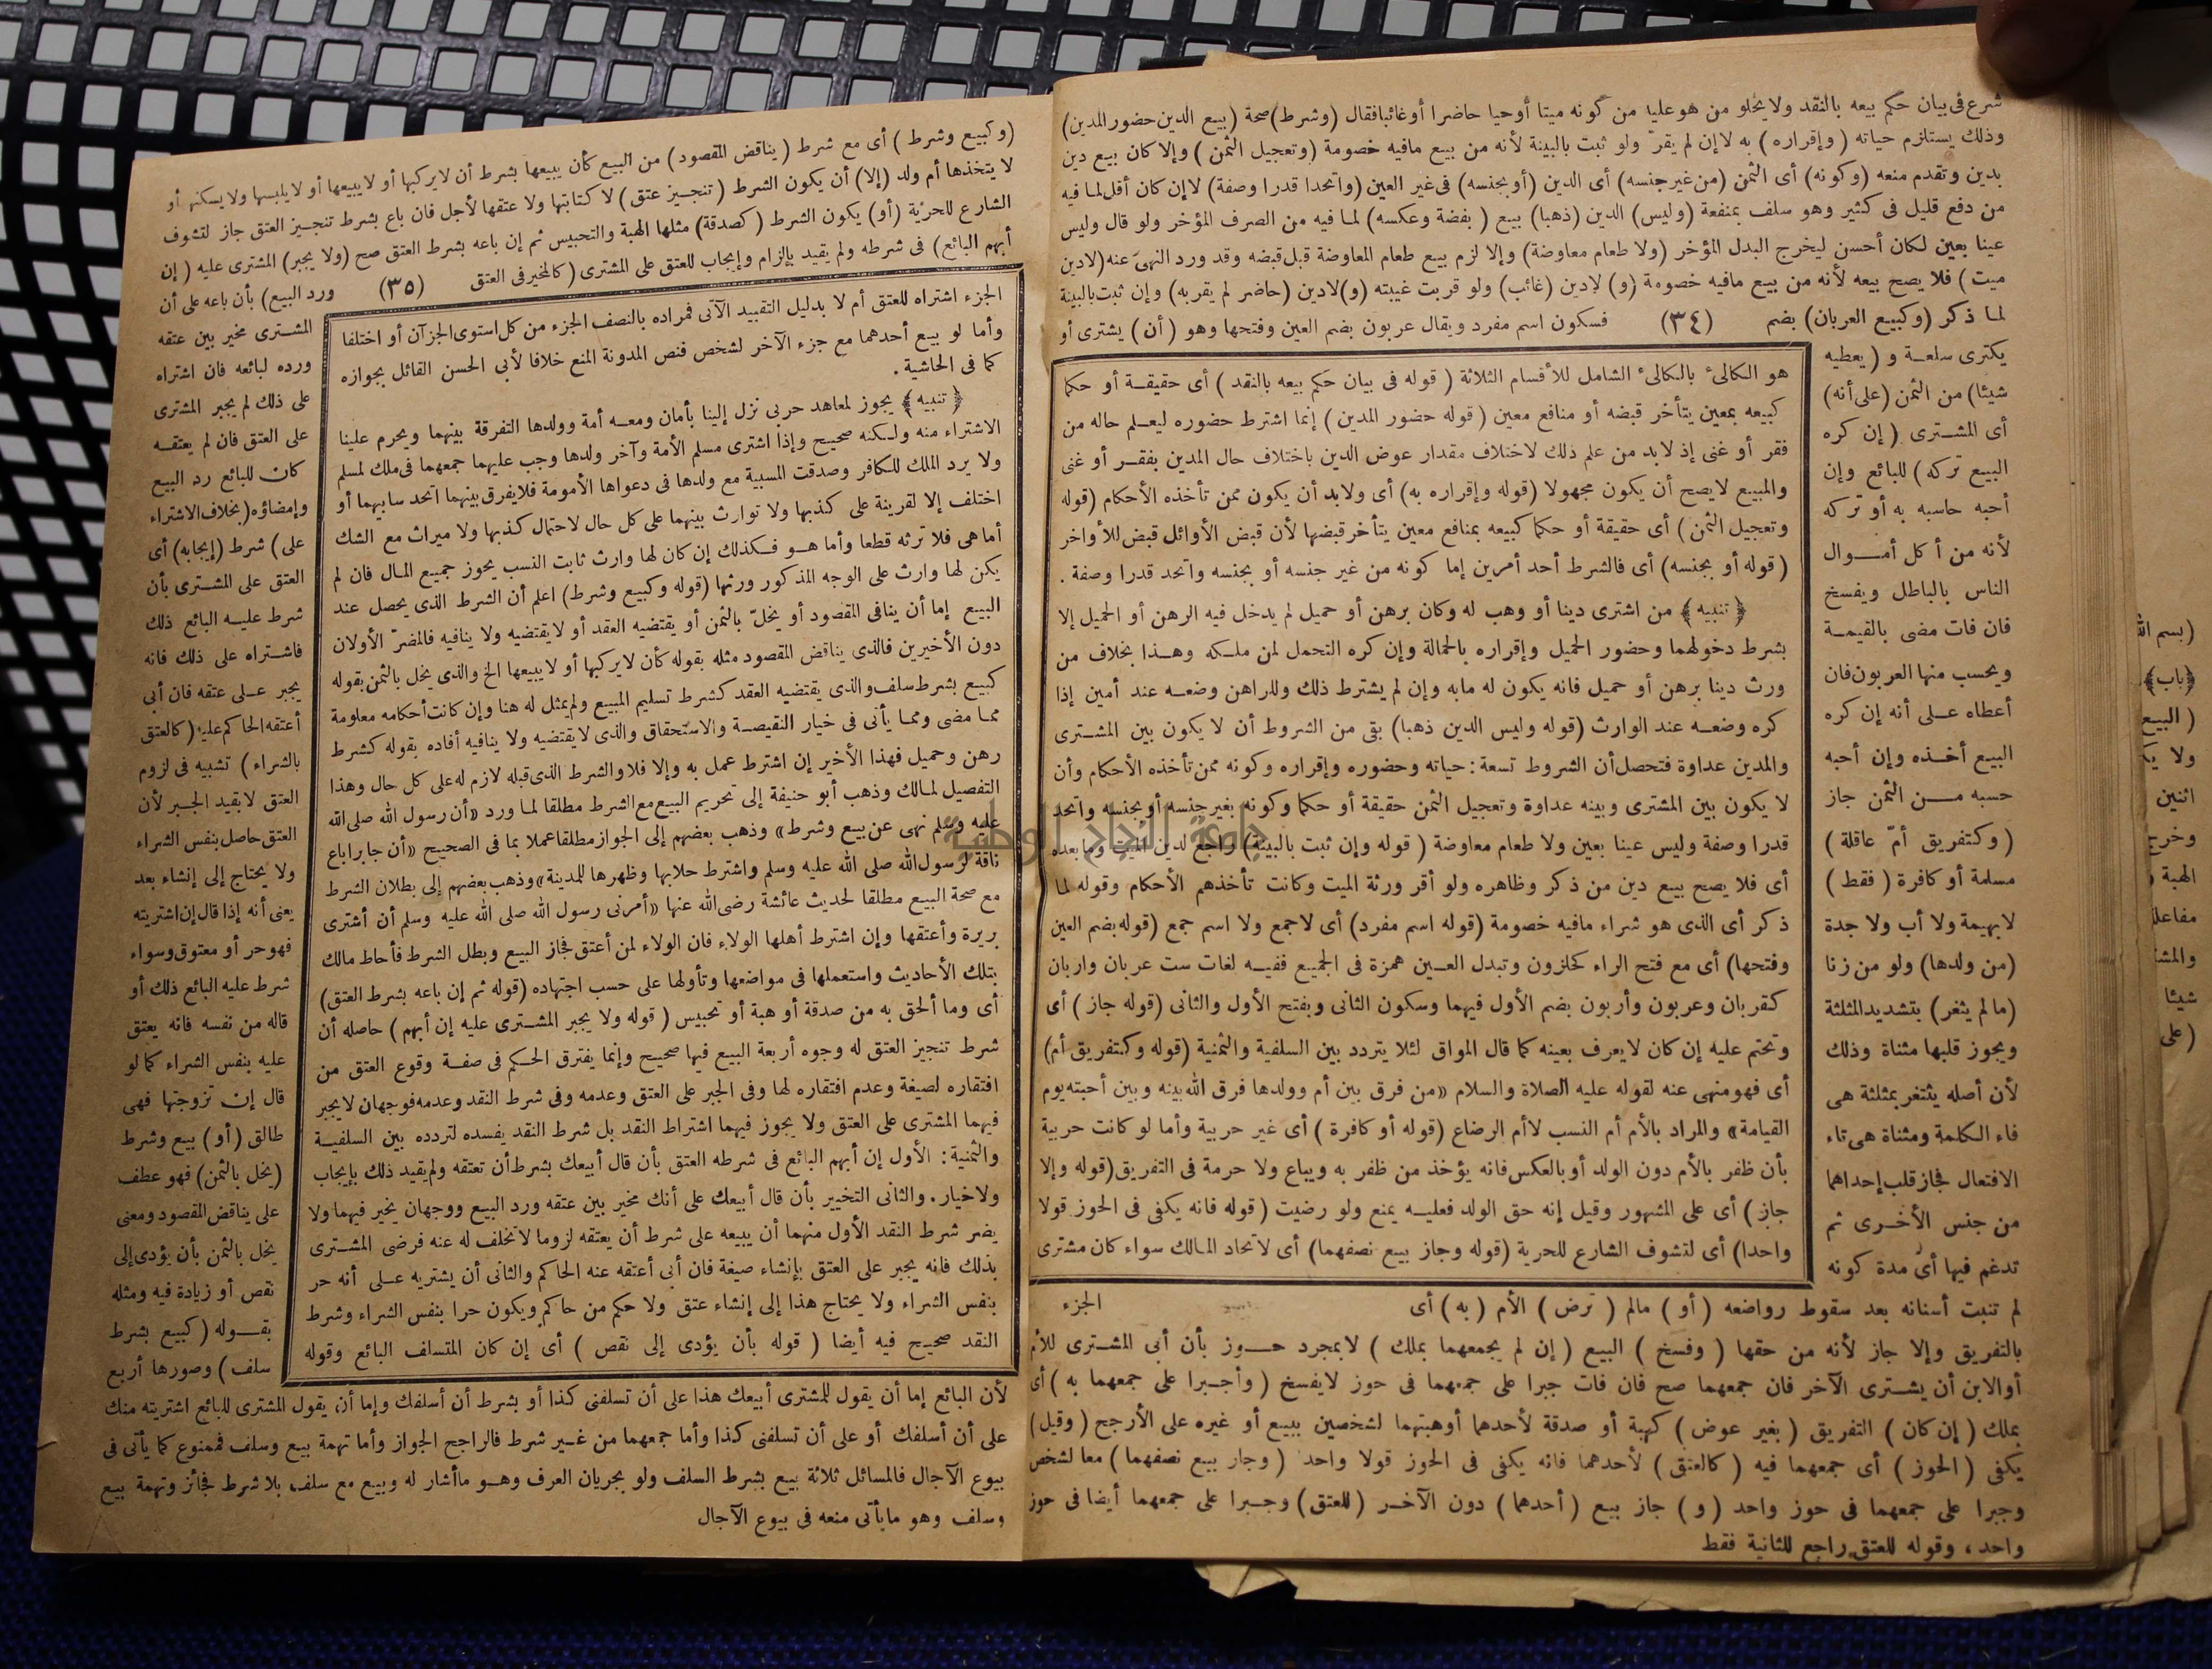 شرع فى بيان حكم بيعه بالنقد ولا يخلو من هو عليه من كونه ميتا أو حيا حاضرا أو غائبا فقال (وشرط) صحة (بيع الدين حضور المدين)
وذلك يستلزم حياته (وإقراره) به لا إن لم يقرّ ولو ثبت بالبينة لأنه من بيع مافيه خصومة (وتعجيل الثمن) وإلا كان بيع دين
بدين وتقدم منعه (وكونه) أى الثمن (من غير جنسه) أى الدين (أو بجنسه) فى غير العين (واتحدا قدرا وصفة) لا إن كان أقل لما فيه
من دفع قليل فى كثير وهو سلف بمنفعة (وليس) الدين (ذهبا) بيع (بفضة وعكسه) لما فيه من الصرف المؤخر ولو قال وليس
عينا بعين لكان أحسن ليخرج البدل المؤخر (ولا طعام معاوضة) وإلا لزم بيع طعام المعاوضة قبل قبضه وقد ورد النهى عنه (لا دين
ميت) فلا يصح بيعه لأنه من بيع مافيه خصومة (و) لا دين (غائب) ولو قربت غيبته (و) لا دين (حاضر لم يقر به) وإن ثبت بالبينة
لما ذكر (وكبيع العربان) بضم (٣٤) فسكون اسم مفرد ويقال عربون بضم العين وفتحها وهو (أن) يشترى أو
يكترى سلعة و (يعطيه
شيئا) من الثمن (على أنه)
أى المشترى (إن كره
البيع تركه) للبائع وإن
أحبه حاسبه به أو تركه
لأنه من أكل أموال
الناس بالباطل ويفسخ
فان فات مضى بالقيمة
ويحسب منها العربون فان
أعطاه على أنه إن كره
البيع أخذه وإن أحبه
حسبه من الثمن جاز
(وكتفريق أمّ عاقلة)
مسلمة أو كافرة (فقط)
لا بهيمة ولا أب ولا جدة
(من ولدها) ولو من زنا
(ما لم يثغر) بتشديد المثلثة
ويجوز قلبها مثناة وذلك
لأن أصله يثتغر بمثلثة هى
فاء الكلمة ومثناة هى تاء
الافتعال فجاز قلب إحداهما
من جنس الأخرى ثم
تدغم فيها أى مدة كونه
لم تنبت أسنانه بعد سقوط رواضعه (أو) مالم (ترض) الأم (به) أى
بالتفريق وإلا جاز لأنه من حقها (وفسخ) البيع (إن لم يجمعهما بملك) لا بمجرد حوز بأن أبى المشترى للأم
أو الابن أن يشترى الآخر فان جمعهما صح فان فات جبرا على جمعهما فى حوز لا يفسخ (وأجبرا على جمعهما به) أى
بملك (إن كان) التفريق (بغير عوض) كهبة أو صدقة لأحدهما أو هبتهما لشخصين ببيع أو غيره على الأرجح (وقيل)
يكفى (الحوز) أى جمعهما فيه (كالعتق) لأحدهما فانه يكفى فى الحوز قولا واحد (وجاز بيع نصفهما) معا لشخص
وجبرا على جمعهما فى حوز واحد (و) جاز بيع (أحدهما) دون الآخر (للعتق) وجبرا على جمعهما أيضا فى حوز
واحد، وقوله للعتق راجع للثانية فقط
هو الكالىء بالكالىء الشامل للأقسام الثلاثة (قوله فى بيان حكم بيعه بالنقد) أى حقيقة أو حكما
كبيعه بمعين يتأخر قبضه أو منافع معين (قوله حضور المدين) إنما اشترط حضوره ليعلم حاله من
فقر أو غنى إذ لابد من علم ذلك لاختلاف مقدار عوض الدين باختلاف حال المدين بفقر أو غنى
والمبيع لا يصح أن يكون مجهولا (قوله وإقراره به) أى ولابد أن يكون ممن تأخذه الأحكام (قوله
وتعجيل الثمن) أى حقيقة أو حكما كبيعه بمنافع معين يتأخر قبضها لأن قبض الأوائل قبض للأواخر
(قوله أو بجنسه) أى فالشرط أحد أمرين إما كونه من غير جنسه أو بجنسه واتحد قدرا وصفة .
﴿تنبيه﴾ من اشترى دينا أو وهب له وكان برهن أو حميل لم يدخل فيه الرهن أو الحميل إلا
بشرط دخولهما وحضور الحميل وإقراره بالحمالة وإن كره التحمل لمن ملكه وهذا بخلاف من
ورث دينا برهن أو حميل فانه يكون له مابه وإن لم يشترط ذلك وللراهن وضعه عند أمين إذا
كره وضعه عند الوارث (قوله وليس الدين ذهبا) بقى من الشروط أن لا يكون بين المشترى
والمدين عداوة فتحصل أن الشروط تسعة: حياته وحضوره وإقراره وكونه ممن تأخذه الأحكام وأن
لا يكون بين المشترى وبينه عداوة وتعجيل الثمن حقيقة أو حكما وكونه بغير جنسه أو بجنسه واتحد
قدرا وصفة وليس عينا بعين ولا طعام معاوضة (قوله وإن ثبت بالبينة) راجع لدين الميت وما بعده
أى فلا يصح بيع دين من ذكر وظاهره ولو أقر ورثة الميت وكانت تأخذهم الأحكام وقوله لما
ذكر أى الذى هو شراء مافيه خصومة (قوله اسم مفرد) أى لا جمع ولا اسم جمع (قوله بضم العين
وفتحها) أى مع فتح الراء كحلزون وتبدل العين همزة فى الجميع ففيه لغات ست عربان واربان
كقربان وعربون وأربون بضم الأول فيهما وسكون الثانى وبفتح الأول والثانى (قوله جاز) أى
وتختم عليه إن كان لا يعرف بعينه كما قال المواق لئلا يتردد بين السلفية والثمنية (قوله وكتفريق أم)
أى فهو منهى عنه لقوله عليه الصلاة والسلام «من فرق بين أم وولدها فرق الله بينه وبين أحبته يوم
القيامة» والمراد بالأم أم النسب لا أم الرضاع (قوله أو كافرة) أى غير حربية وأما لو كانت حربية
بأن ظفر بالأم دون الولد أو بالعكس فانه يؤخذ من ظفر به ويباع ولا حرمة فى التفريق (قوله وإلا
جاز) أى على المشهور وقيل إنه حق الولد فعليه يمنع ولو رضيت (قوله فانه يكفى فى الحوز قولا
واحدا) أى لتشوف الشارع للحرية (قوله وجاز بيع نصفهما) أى لاتحاد المالك سواء كان مشترى
الجزء
(وكبيع وشرط) أى مع شرط (يناقض المقصود) من البيع كأن يبيعها بشرط أن لا يركبها أو لا يبيعها أو لا يلبسها ولا يسكنها أو
لا يتخذها أم ولد (إلا) أن يكون الشرط (تنجيز عتق) لا كتابتها ولا عتقها لأجل فان باع بشرط تنجيز العتق جاز لتشوف
الشارع للحرية (أو) يكون الشرط (كصدقة) مثلها الهبة والتحبيس ثم إن باعه بشرط العتق صح (ولا يجبر) المشترى عليه (إن
أبهم البائع) فى شرطه ولم يقيد بإلزام وإيجاب للعتق على المشترى (كالمخير فى العتق (٣٥) ورد البيع) بأن باعه على أن
المشترى مخير بين عتقه
ورده لبائعه فان اشتراه
على ذلك لم يجبر المشترى
على العتق فان لم يعتقه
كان للبائع رد البيع
وإمضاؤه (بخلاف الاشتراء
على) شرط (إيجابه) أى
العتق على المشترى بأن
شرط عليه البائع ذلك
فاشتراه على ذلك فانه
يجبر على عتقه فان أبى
أعتقه الحاكم عليه (كالعتق
بالشراء) تشبيه فى لزوم
العتق لا بقيد الجبر لأن
العتق حاصل بنفس الشراء
ولا يحتاج إلى إنشاء بعد
يعنى أنه إذا قال إن اشتريته
فهو حر أو معتوق وسواء
شرط عليه البائع ذلك أو
قاله من نفسه فانه يعتق
عليه بنفس الشراء كما لو
قال إن تزوجتها فهى
طالق (أو) بيع وشرط
(يخل بالثمن) فهو عطف
على يناقض المقصود ومعنى
يخل بالثمن بأن يؤدى إلى
نقص أو زيادة فيه ومثله
بقوله (كبيع بشرط
سلف) وصورها أربع
لأن البائع إما أن يقول للمشترى أبيعك هذا على أن تسلفنى كذا أو بشرط أن أسلفك وإما أن يقول المشترى للبائع اشتريته منك
على أن أسلفك أو على أن تسلفنى كذا وأما جمعهما من غير شرط فالراجح الجواز وأما تهمة بيع وسلف فممنوع كما يأتى فى
بيوع الآجال فالمسائل ثلاثة بيع بشرط السلف ولو بجريان العرف وهو ما أشار له وبيع مع سلف بلا شرط فجائز وتهمة بيع
وسلف وهو ما يأتى منعه فى بيوع الآجال
الجزء اشتراه للعتق أم لا بدليل التقييد الآتى فمراده بالنصف الجزء من كل استوى الجزآن أو اختلفا
وأما لو بيع أحدهما مع جزء الآخر لشخص فنص المدونة المنع خلافا لأبى الحسن القائل بجوازه
كما فى الحاشية .
﴿تنبيه﴾ يجوز لمعاهد حربى نزل إلينا بأمان ومعه أمة وولدها التفرقة بينهما ويحرم علينا
الاشتراء منه ولكنه صحيح وإذا اشترى مسلم الأمة وآخر ولدها وجب عليهما جمعهما فى ملك لمسلم
ولا يرد الملك للكافر وصدقت المسبية مع ولدها فى دعواها الأمومة فلا يفرق بينهما اتحد سابيهما أو
اختلف إلا لقرينة على كذبها ولا توارث بينهما على كل حال لاحتمال كذبها ولا ميراث مع الشك
أما هى فلا ترثه قطعا وأما هو فكذلك إن كان لها وارث ثابت النسب يحوز جميع المال فان لم
يكن لها وارث على الوجه المذكور ورثها (قوله وكبيع وشرط) اعلم أن الشرط الذى يحصل عند
البيع إما أن ينافى المقصود أو يخلّ بالثمن أو يقتضيه العقد أو لا يقتضيه ولا ينافيه فالمضرّ الأولان
دون الأخيرين فالذى يناقض المقصود مثله بقوله كأن لا يركبها أو لا يبيعها الخ والذى يخل بالثمن بقوله
كبيع بشرط سلف والذى يقتضيه العقد كشرط تسليم المبيع ولم يمثل له هنا وإن كانت أحكامه معلومة
مما مضى ومما يأتى فى خيار النقيصة والاستحقاق والذى لا يقتضيه ولا ينافيه أفاده بقوله كشرط
رهن وحميل فهذا الأخير إن اشترط عمل به وإلا فلا والشرط الذى قبله لازم له على كل حال وهذا
التفصيل لمالك وذهب أبو حنيفة إلى تحريم البيع مع الشرط مطلقا لما ورد «أن رسول الله صلى الله
عليه وسلم نهى عن بيع وشرط» وذهب بعضهم إلى الجواز مطلقا عملا بما فى الصحيح «أن جابرا باع
ناقة لرسول الله صلى الله عليه وسلم واشترط حلابها وظهرها للمدينة» وذهب بعضهم إلى بطلان الشرط
مع صحة البيع مطلقا لحديث عائشة رضى الله عنها «أمرنى رسول الله صلى الله عليه وسلم أن أشترى
بريرة وأعتقها وإن اشترط أهلها الولاء فان الولاء لمن أعتق فجاز البيع وبطل الشرط فأحاط مالك
بتلك الأحاديث واستعملها فى مواضعها وتأولها على حسب اجتهاده (قوله ثم إن باعه بشرط العتق)
أى وما ألحق به من صدقة أو هبة أو تحبيس (قوله ولا يجبر المشترى عليه إن أبهم) حاصله أن
شرط تنجيز العتق له وجوه أربعة البيع فيها صحيح وإنما يفترق الحكم فى صفة وقوع العتق من
افتقاره لصيغة وعدم افتقاره لها وفى الجبر على العتق وعدمه وفى شرط النقد وعدمه فوجهان لا يجبر
فيهما المشترى على العتق ولا يجوز فيهما اشتراط النقد بل شرط النقد يفسده لتردده بين السلفية
والثمنية: الأول إن أبهم البائع فى شرطه العتق بأن قال أبيعك بشرط أن تعتقه ولم يقيد ذلك بإيجاب
ولا خيار. والثانى التخيير بأن قال أبيعك على أنك مخير بين عتقه ورد البيع ووجهان يخير فيهما ولا
يضر شرط النقد الأول منهما أن يبيعه على شرط أن يعتقه لزوما لا تخلف له عنه فرضى المشترى
بذلك فانه يجبر على العتق بإنشاء صيغة فان أبى أعتقه عنه الحاكم والثانى أن يشتريه على أنه حر
بنفس الشراء ولا يحتاج هذا إلى إنشاء عتق ولا حكم من حاكم ويكون حرا بنفس الشراء وشرط
النقد صحيح فيه أيضا (قوله بأن يؤدى إلى نقص) أى إن كان المتسلف البائع وقوله
جامعة النجاح الوطنية